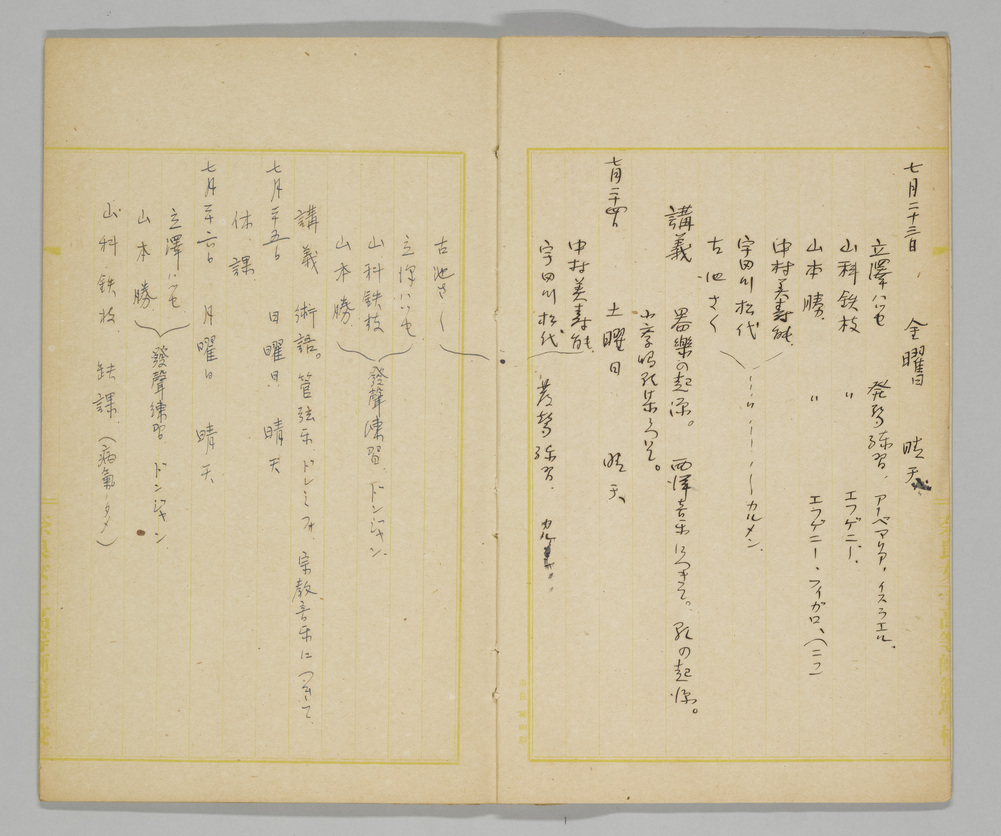 七月二十三日、 金曜日 晴天、
立澤ハツセ 発声練習、アーベマリア、イスラエル、
山科鉄枝 〃 エフゲニー、
山本勝、 〃 エフゲニー、フィガロ、(二つ
中村美寿能、
宇田川松代
古池さく カルメン、
講義 器樂の起源。西洋音乐につきて。歌の起源。
につきて。
七月二十四日 土曜日 晴天、
中村美寿能、
宇田川松代 発声練習、
古池さく
立澤ハツセ、
山科鉄枝
山本勝、 發聲練習、ドンジャン、
講義 術語。管弦乐、ドレミファ、宗教音乐につきて、
七月二十五日 日曜日、 晴天
休課
七月二十六日 月曜日 晴天、
立澤ハツセ
山本勝 發聲練習、ドンジャン
山科鉄枝、 缺課、(病氣ノタメ)